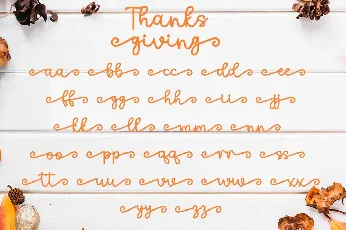 Thanks
giving
aa bb cc dd ee
ff gg hh ii jj
kk ll mm nn
oo pp qq rr ss
tt uu vv ww xx
yy zz